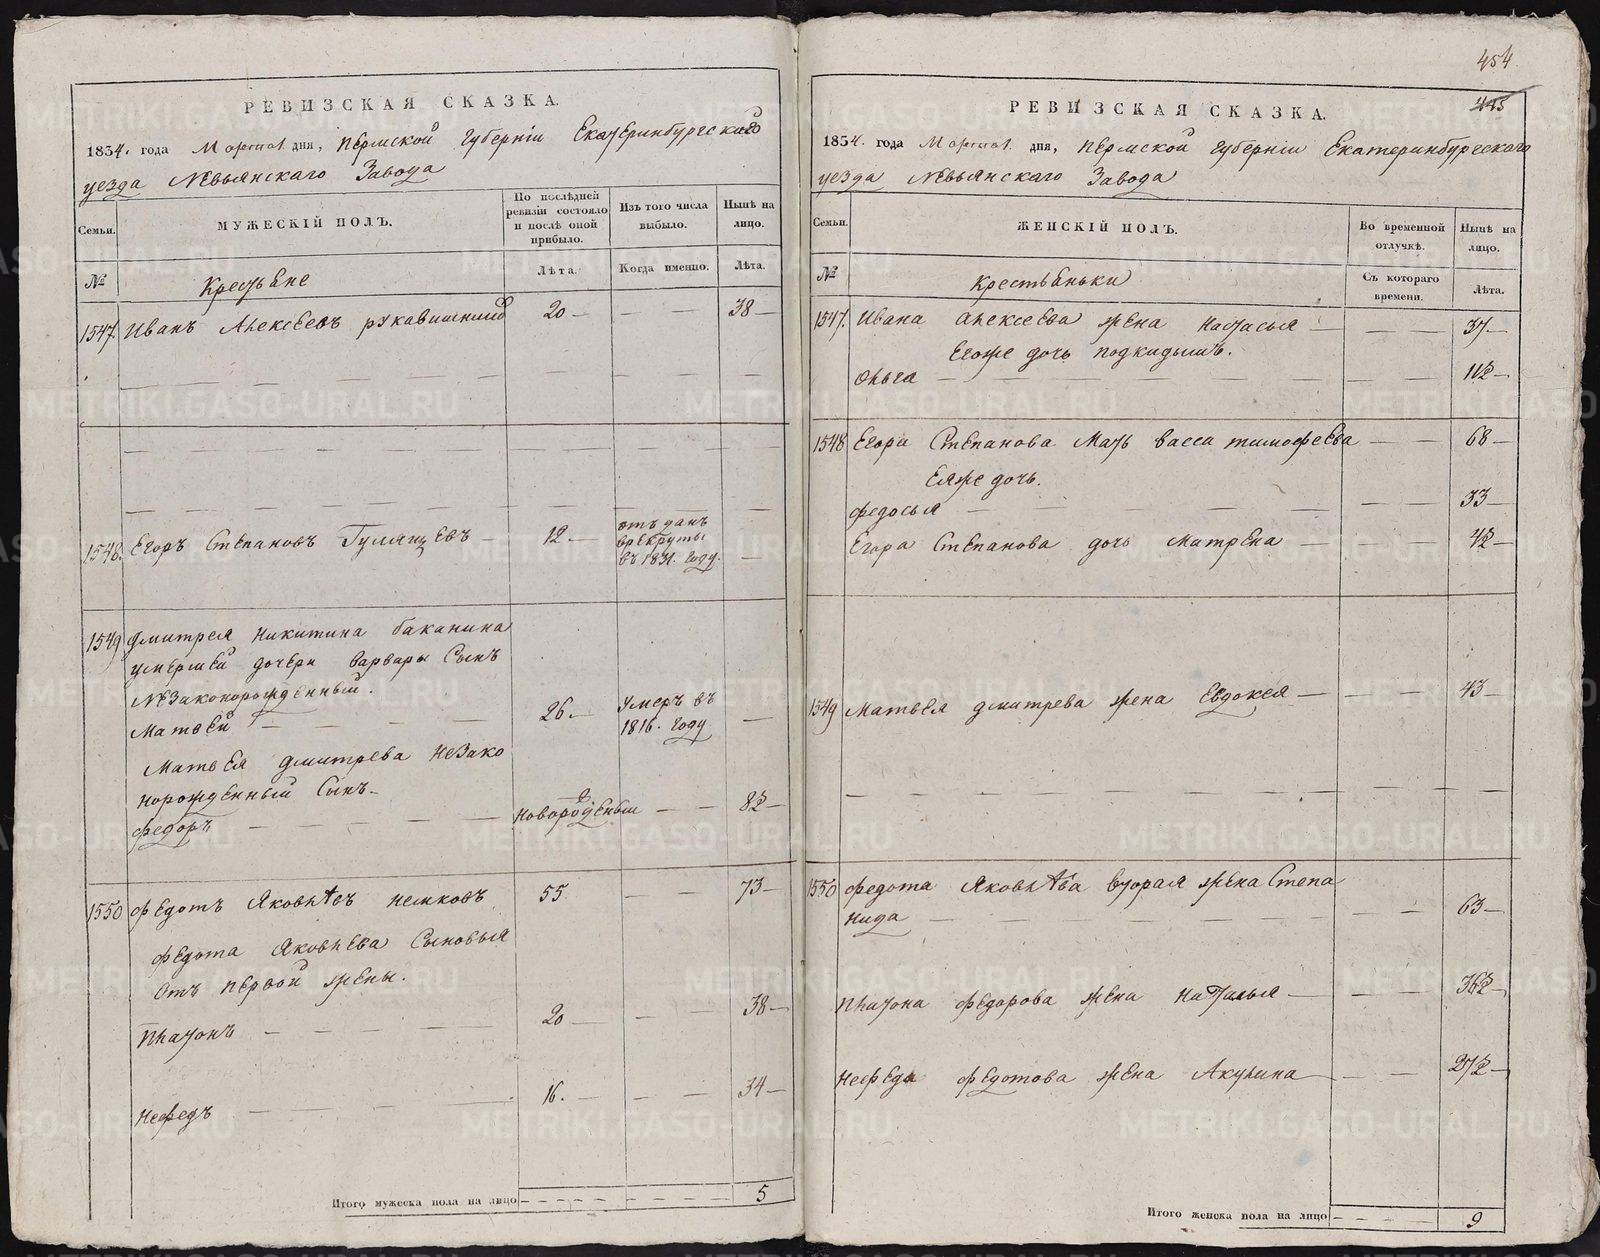 РЕВИЗСКАЯ СКАЗКА.
1834. года Марта дня, Пермской Губерніи Екатеринбургскаго
уезда Невьянскаго Завода
Семьи.
МУЖЕСКІЙ ПОЛЪ.
По послѣдней ревизіи состояло и послѣ оной прибыло.
Изъ того числа выбыло.
Нынѣ на лицо.
№
Крестьяне
Лѣта.
Когда именно.
Лѣта.
1547. Иванъ Алексеевъ рукавишниковъ 20 — — — 38 —
1548. Егоръ Степановъ Гулянцевъ — 12 —
отъ данъ
врекруты
въ 1831. году. —
1549 Дмитрея Никитина баканина
умершей дочери варвары Сынъ
Незаконорожденный.
Матвей — — 26. —
умеръ въ
1816. году —
Матвея Дмитрева незако
норожденный Сынъ —
федоръ — новорожденый — — 8½ —
1550 федотъ Яковлевъ немковъ 55 — — 73 —
федота Яковлева Сыновья
Отъ первой жены.
Платонъ — 20 — — — 38 —
Нефедъ — 16. — — — 34 —
Итого мужеска пола на лицо — 5
454
445
РЕВИЗСКАЯ СКАЗКА.
1834. года Марта дня, Пермской Губерніи Екатеринбургскаго
уезда Невьянскаго Завода
Семьи.
ЖЕНСКІЙ ПОЛЪ.
Во временной отлучкѣ.
Нынѣ на лицо.
№
Крестьянки
Съ котораго времени.
Лѣта.
1547. Ивана Алексеева жена настасья — — — 37 —
Егоже дочь подкидышъ.
Ольга — — — 11½ —
1548 Егора Степанова Мать васса тимофеева — — 68 —
Еяже дочь.
федосья — — — 33 —
Егора Степанова дочь Матрена — — — 4½ —
1549 Матвея дмитрева жена Евдокея — — — 43 —
1550 федота Яковлева вторая жена Степа
нида — — — 63 —
Платона федорова жена Наталья — — — 36½ —
Нефеда федотова жена Акулина — — — 27½ —
Итого женска пола на лицо — 9
METRIKI.GASO-URAL.RU